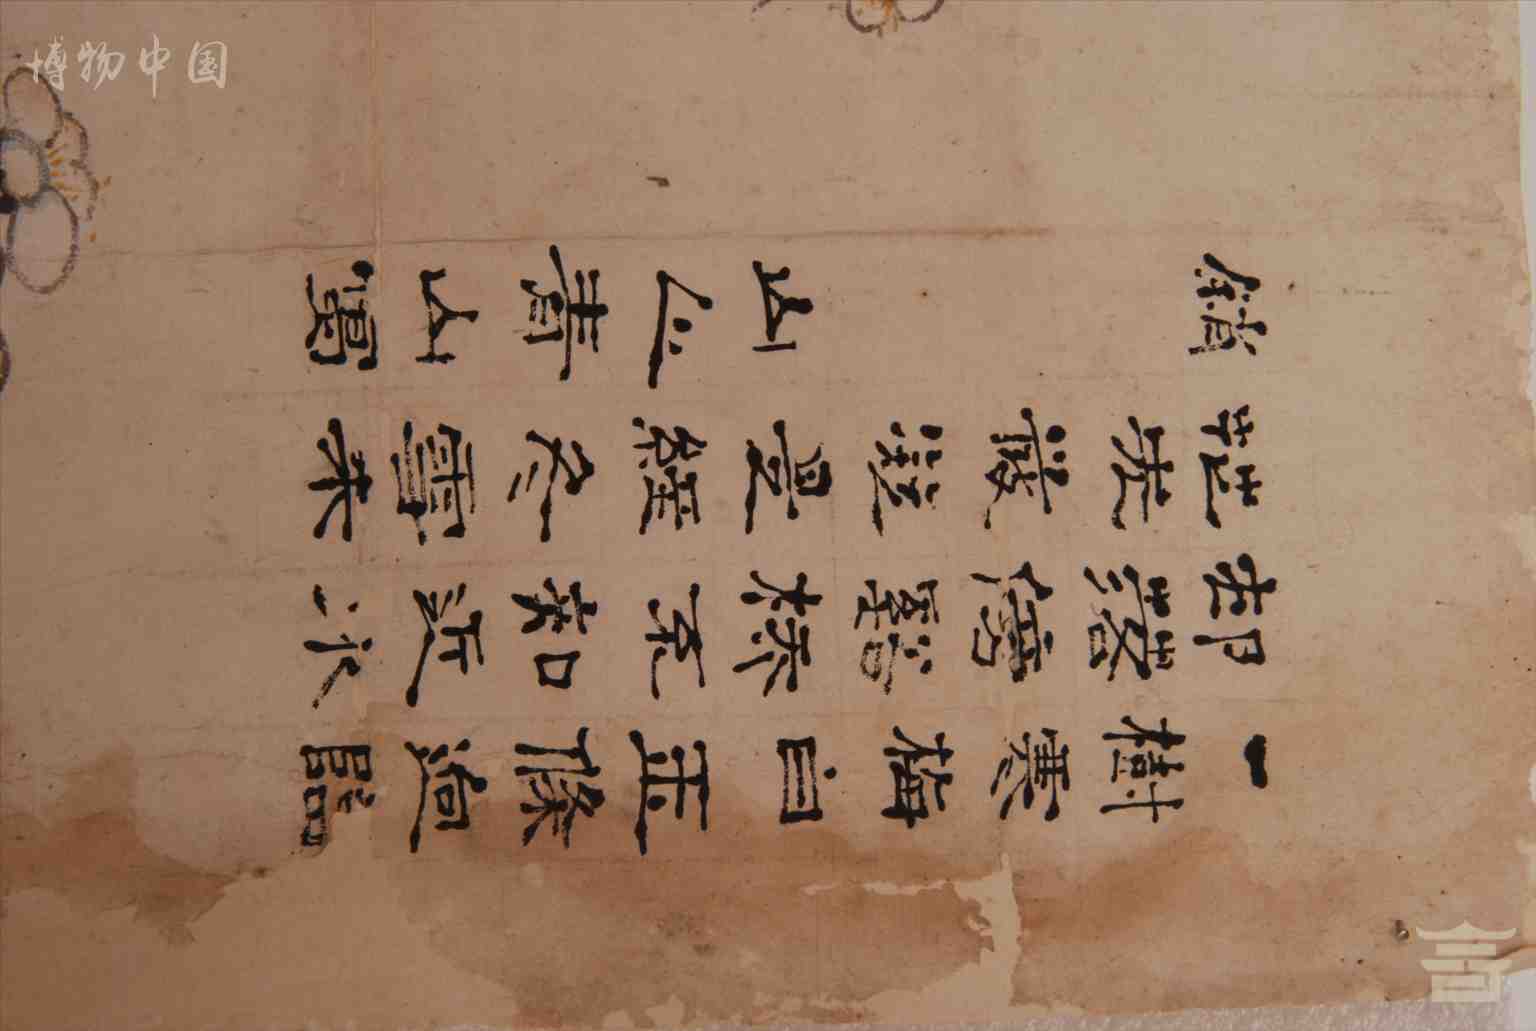 博物中国
一樹寒梅白玉條迥臨
邨路傍谿橋不知近水
花先發疑是經冬雪未
銷
山青山寫